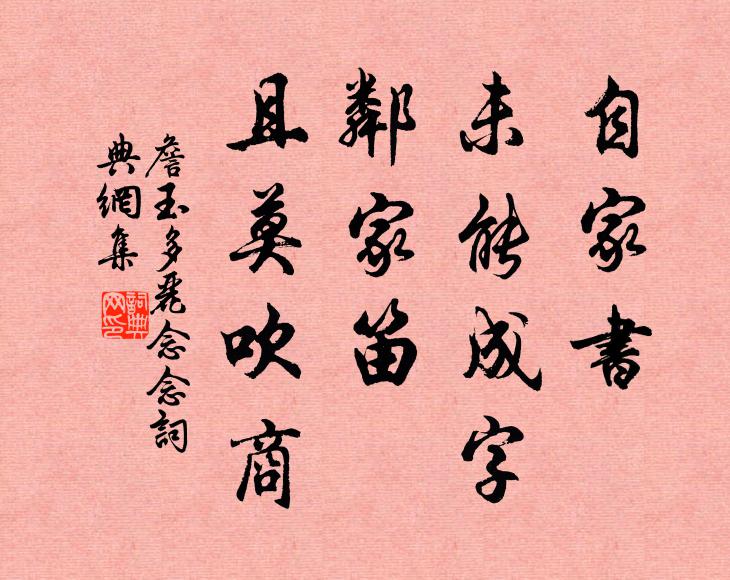 自家書
未能成字
鄰家笛
且莫吹商
詹玉多麗念念詞
典網集
詞典网印